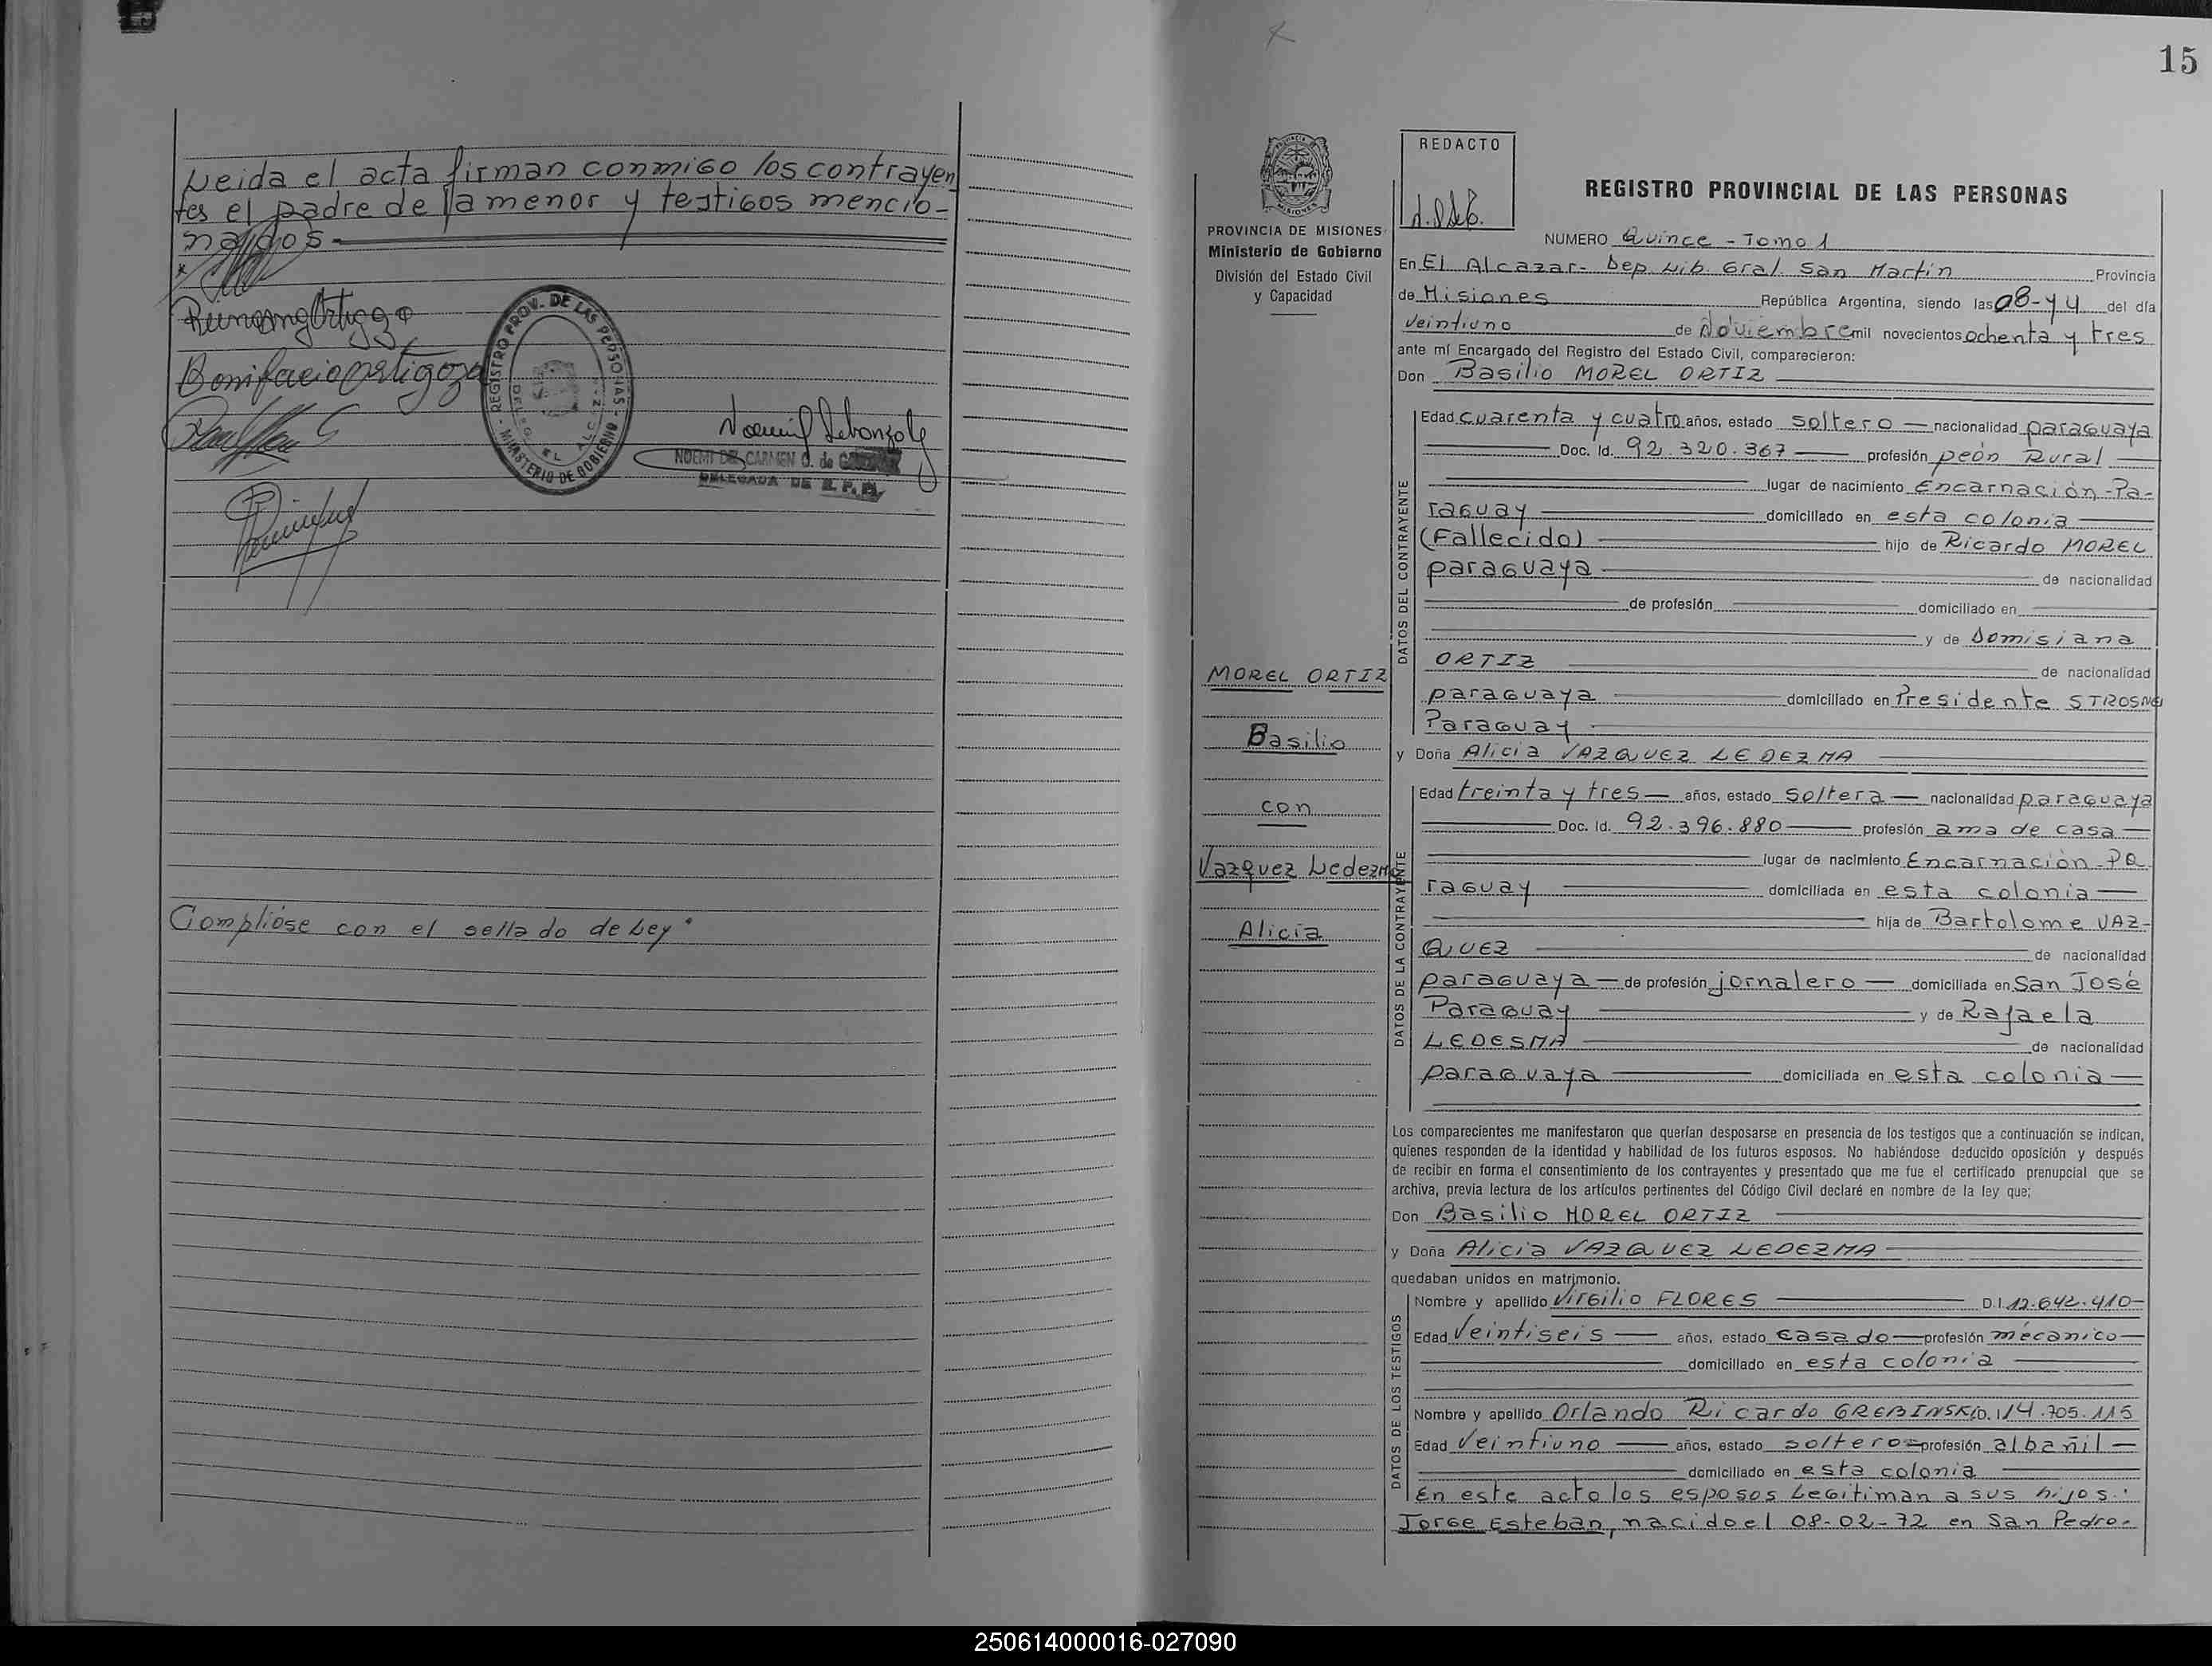 Leida el acta firman conmigo los contrayen
tes el padre de la menor y testigos mencio-
nados.
Bonifacio Ortigoza
REGISTRO PROV. DE LAS PERSONAS - MINISTERIO DE GOBIERNO
NOEMI DEL CARMEN G. de
DELEGADA DE R. P. P.
Compliose con el sellado de Ley.
15
PROVINCIA DE MISIONES
Ministerio de Gobierno
División del Estado Civil
y Capacidad
MOREL ORTIZ
Basilio
con
Vazquez Ledezma
Alicia
REDACTO
REGISTRO PROVINCIAL DE LAS PERSONAS
NUMERO Quince - Tomo 1
En El Alcazar- Dep. Lib. Gral. San Martin Provincia
de Misiones República Argentina, siendo las 08-44 del día
Veintiuno de Noviembre mil novecientos ochenta y tres
ante mí Encargado del Registro del Estado Civil, comparecieron:
Don Basilio MOREL ORTIZ
DATOS DEL CONTRAYENTE
Edad cuarenta y cuatro años, estado soltero nacionalidad paraguaya
Doc. Id. 92.320.367 profesión peòn Rural
lugar de nacimiento Encarnaciòn-Pa-
raguay domiciliado en esta colonia
(Fallecido) hijo de Ricardo MOREL
paraguaya de nacionalidad
de profesión domiciliado en
y de Domisiana
ORTIZ de nacionalidad
paraguaya domiciliado en Presidente STROSNE
Paraguay
y Doña Alicia VAZQUEZ LEDEZMA
DATOS DE LA CONTRAYENTE
Edad treinta y tres años, estado soltera nacionalidad paraguaya
Doc. Id. 92.396.880 profesión ama de casa
lugar de nacimiento Encarnaciòn-Pa
raguay domiciliada en esta colonia
hija de Bartolome VAZ-
QUEZ de nacionalidad
paraguaya de profesión jornalero domiciliada en San José
Paraguay y de Rafaela
LEDESMA de nacionalidad
paraguaya domiciliada en esta colonia
Los comparecientes me manifestaron que querían desposarse en presencia de los testigos que a continuación se indican,
quienes responden de la identidad y habilidad de los futuros esposos. No habiéndose deducido oposición y después
de recibir en forma el consentimiento de los contrayentes y presentado que me fue el certificado prenupcial que se
archiva, previa lectura de los artículos pertinentes del Código Civil declaré en nombre de la ley que;
Don Basilio MOREL ORTIZ
y Doña Alicia VAZQUEZ LEDEZMA
quedaban unidos en matrimonio.
DATOS DE LOS TESTIGOS
Nombre y apellido Virgilio FLORES D.I. 12.642.410
Edad Veintiseis años, estado casado profesión mecanico
domiciliado en esta colonia
Nombre y apellido Orlando Ricardo GREBINSKI D.I. 14.705.115
Edad Veintiuno años, estado soltero profesión albañil
domiciliado en esta colonia
En este acto los esposos Legitiman a sus hijos:
Jorge Esteban, nacido el 08-02-72 en San Pedro-
250614000016-027090